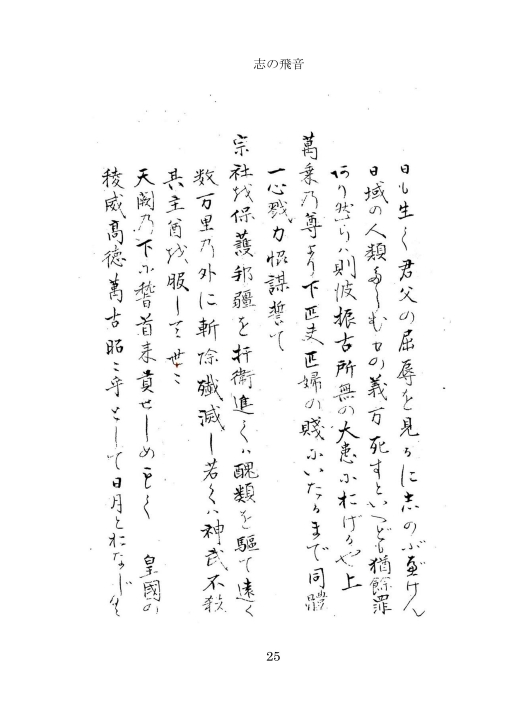 志の飛音
日も生く君父の屈辱を見るに志のぶべけん
日域の人類たらむもの義万死すといへども猶餘罪
あり然らハ則彼振古所無の大患におけるや上
萬乗乃尊より下匹夫匹婦の賤ふいたるまで同體
一心戮力恊謀誓て
宗社を保護邦疆を扞衛進てハ醜類を驅て遠く
数万里乃外に斬除殲滅し若くハ神武不殺
其主酋を服して世ミ
天闕乃下ふ稽首来貢せしめもて 皇國の
稜威高徳萬古昭ミ乎として日月とおなじ
25